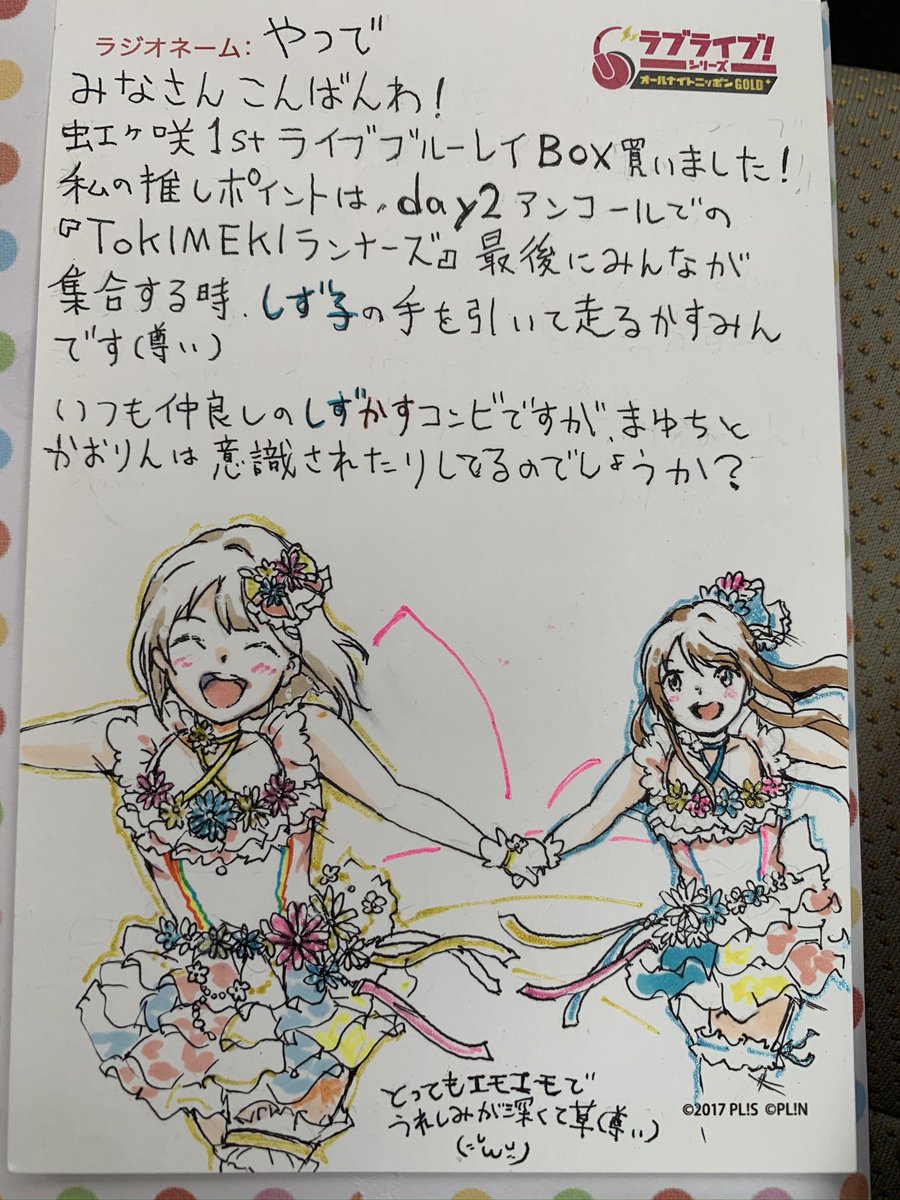 ラジオネーム: やつで
ラブライブ!
シリーズ
オールナイトニッポンGOLD
みなさんこんばんわ!
虹ヶ咲1stライブブルーレイBox買いました!
私の推しポイントは、day2アンコールでの
『TOKIMEKIランナーズ』最後にみんなが
集合する時、しず子の手を引いて走るかすみん
です(尊い)
いつも仲良しのしずかすコンビですが、まゆちと
かおりんは意識されたりしてるのでしょうか?
とってもエモエモで
うれしみが深くて草(尊い)
©2017 PL!S ©PL!N